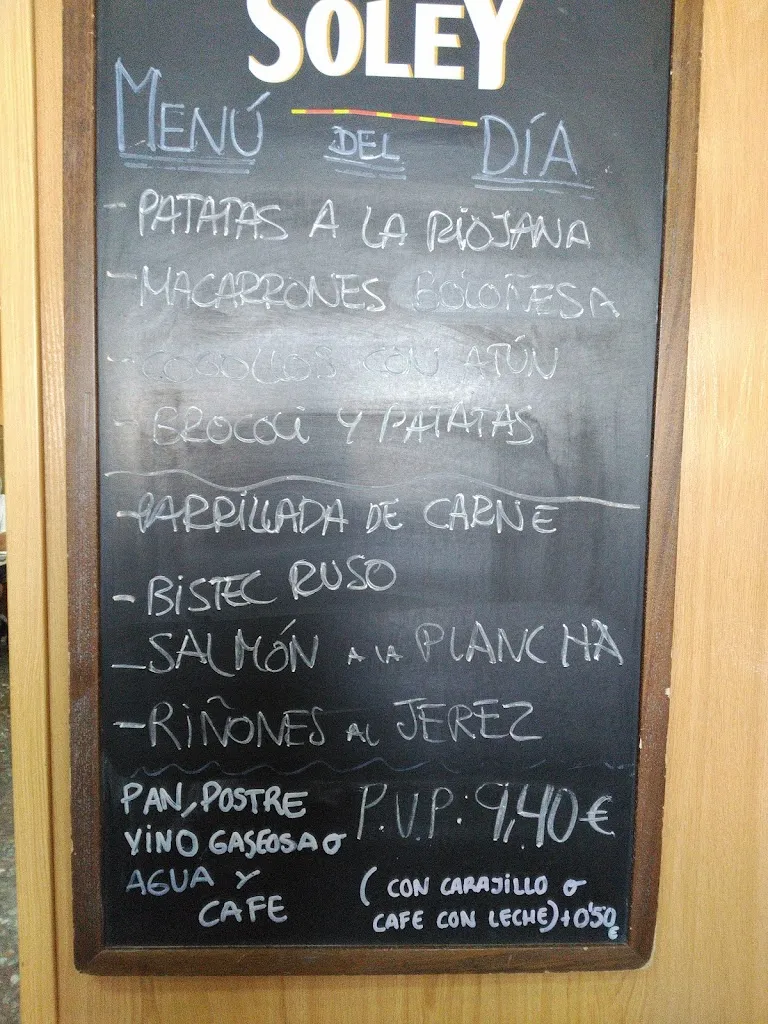 SOLEY
MENÚ DEL DÍA
- PATATAS A LA RIOJANA
- MACARRONES BOLOÑESA
- COGOLLOS CON ATÚN
- BROCOLI Y PATATAS
- PARRILLADA DE CARNE
- BISTEC RUSO
- SALMÓN A LA PLANCHA
- RIÑONES AL JEREZ
PAN, POSTRE
VINO GASEOSA O
AGUA Y
CAFE
P.V.P: 9,40€
(CON CARAJILLO O
CAFE CON LECHE)+0'50
€